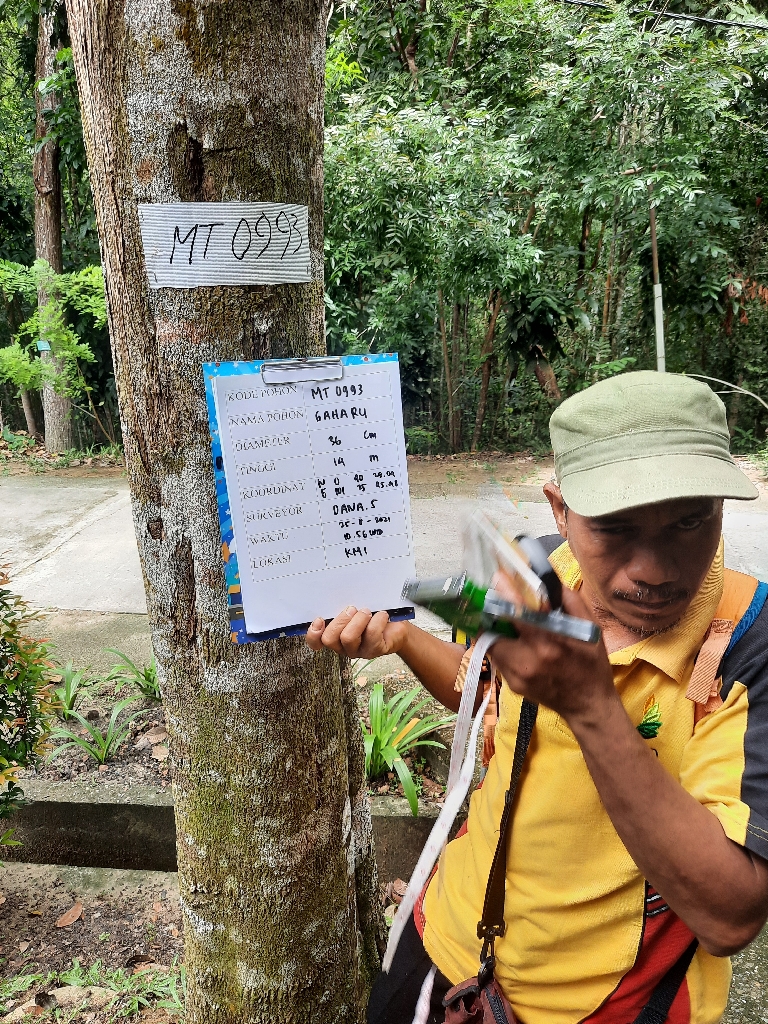 MT 0993
KODE POHON MT 0993
NAMA POHON GAHARU
DIAMETER 36 Cm
TINGGI 14 m
KOORDINAT N 0 40
SURVEYOR DANA.S
WAKTU
LOKASI KMI